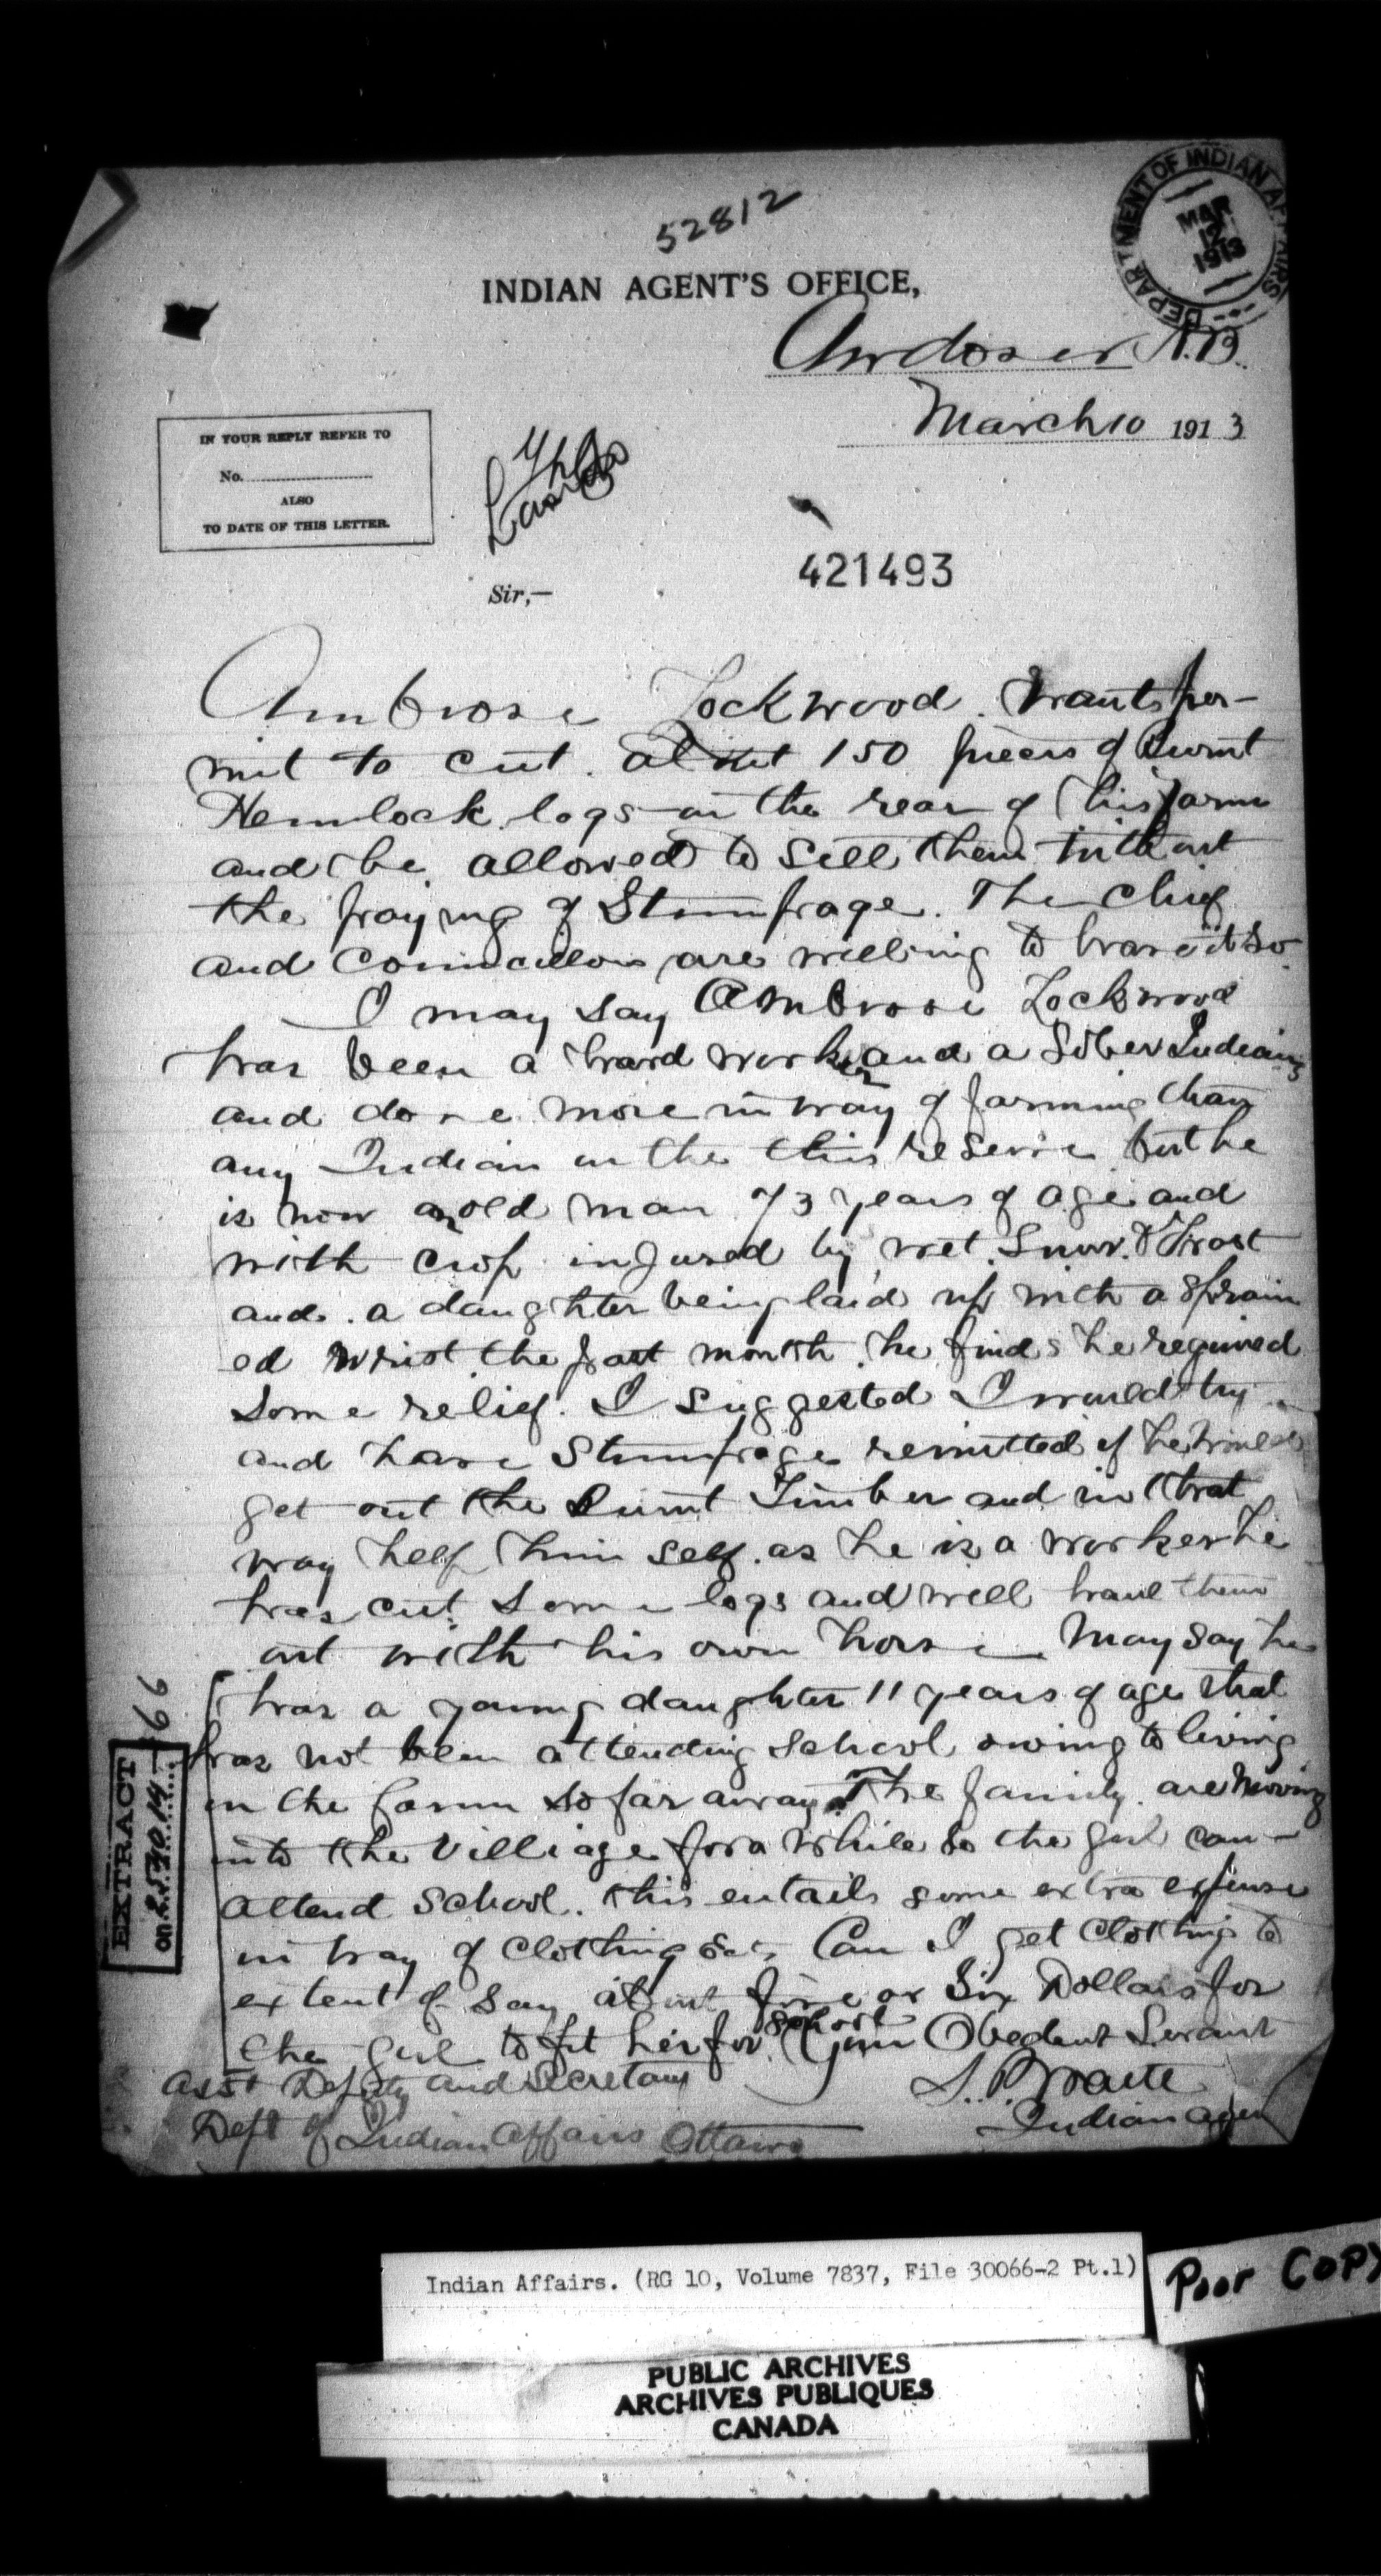 52812
DEPARTMENT OF INDIAN AFFAIRS
MAR
12
1913
INDIAN AGENT'S OFFICE,
Andover N.B.
March 10 1913
IN YOUR REPLY REFER TO
No.
ALSO
TO DATE OF THIS LETTER.
421493
Sir,—
Ambrose Lockwood. wants per-
mit to cut. about 150 pieces of burnt
Hemlock logs on the rear of his farm
and be allowed to sell them without
the paying of Stumpage. The Chief
and Councillors are willing to have it so
I may say Ambrose Lockwood
has been a hard worker and a Sober Indian
and done more in way of farming than
any Indian on the this reserve but he
is now an old man 73 years of age and
with crop injured by wet, Snow & Frost
and a daughter being laid up with a sprain
ed wrist the past month, he finds he required
some relief. I suggested I would try
and have Stumpage remitted if he would
get out the burnt Timber and in that
way help him self. as he is a worker he
has cut some logs and will haul them
out with his own horse May say he
has a young daughter 11 years of age that
has not been attending school owing to living
on the farm so far away The family are moving
into the Villiage for a while so the girl can
attend School. this entails some extra expense
in way of clothing &c. Can I get Clothing to
extent of say about five or Six Dollars for
the girl to fit her for school Your Obedent Servant
Asst Deputy and Secretary
Dept of Indian Affairs Ottawa
Indian agent
EXTRACT
on
66
Indian Affairs. (RG 10, Volume 7837, File 30066-2 Pt.1)
Poor COPY
PUBLIC ARCHIVES
ARCHIVES PUBLIQUES
CANADA